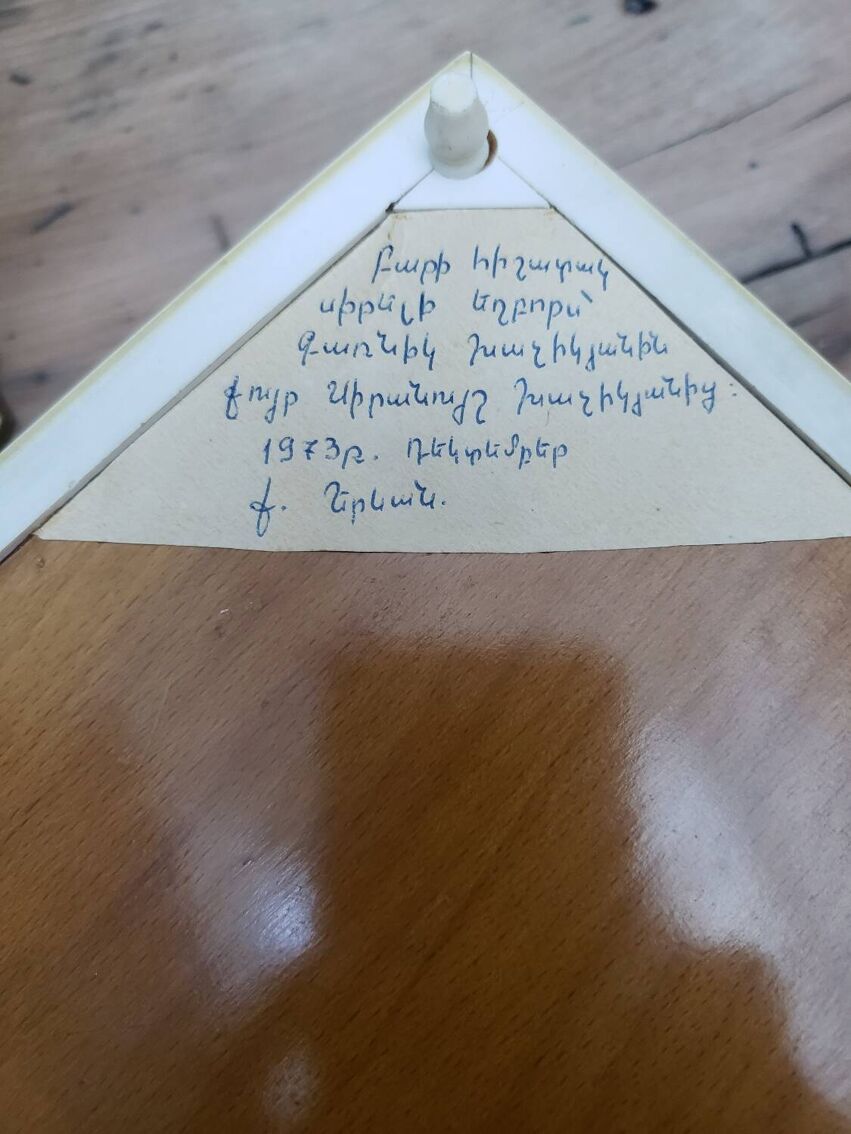 Բարի հիշատակ
սիրելի եղբորս՝
Գառնիկ Խաչիկյանին
քույր Սիրանույշ Խաչիկյանից։
1973թ. Դեկտեմբեր
ք. Երևան.